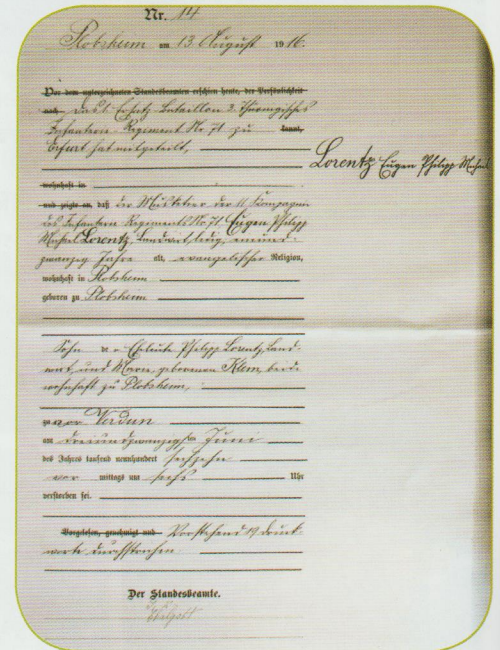 Nr. 14
Plobsheim am 13. August 1916.
Vor dem unterzeichneten Standesbeamten erschien heute, der Persönlichkeit
nach Das 1. Ersatz Bataillon 3. Thüringisches
Infanterie Regiment Nr. 71 zu kannt,
Erfurt hat mitgeteilt,
Lorentz Eugen Philipp Michael
wohnhaft in
und zeigte an, daß der Musketier der 11. Kompagnie
des Infanterie Regiments Nr. 71 Eugen Philipp
Michael Lorentz, Landwirt, ledig, einund-
zwanzig Jahre alt, evangelischer Religion,
wohnhaft in Plobsheim
geboren zu Plobsheim
Sohn der Eheleute Philipp Lorentz, Land-
wirt, und Maria geborenen Klem, beide
wohnhaft zu Plobsheim,
zu vor Verdun
am dreiundzwanzigsten Juni
des Jahres tausend neunhundert sechzehn
vor mittags um sechs Uhr
verstorben sei.
Vorgelesen, genehmigt und Vorstehend 19 Druck-
worte durchstrichen
Der Standesbeamte.